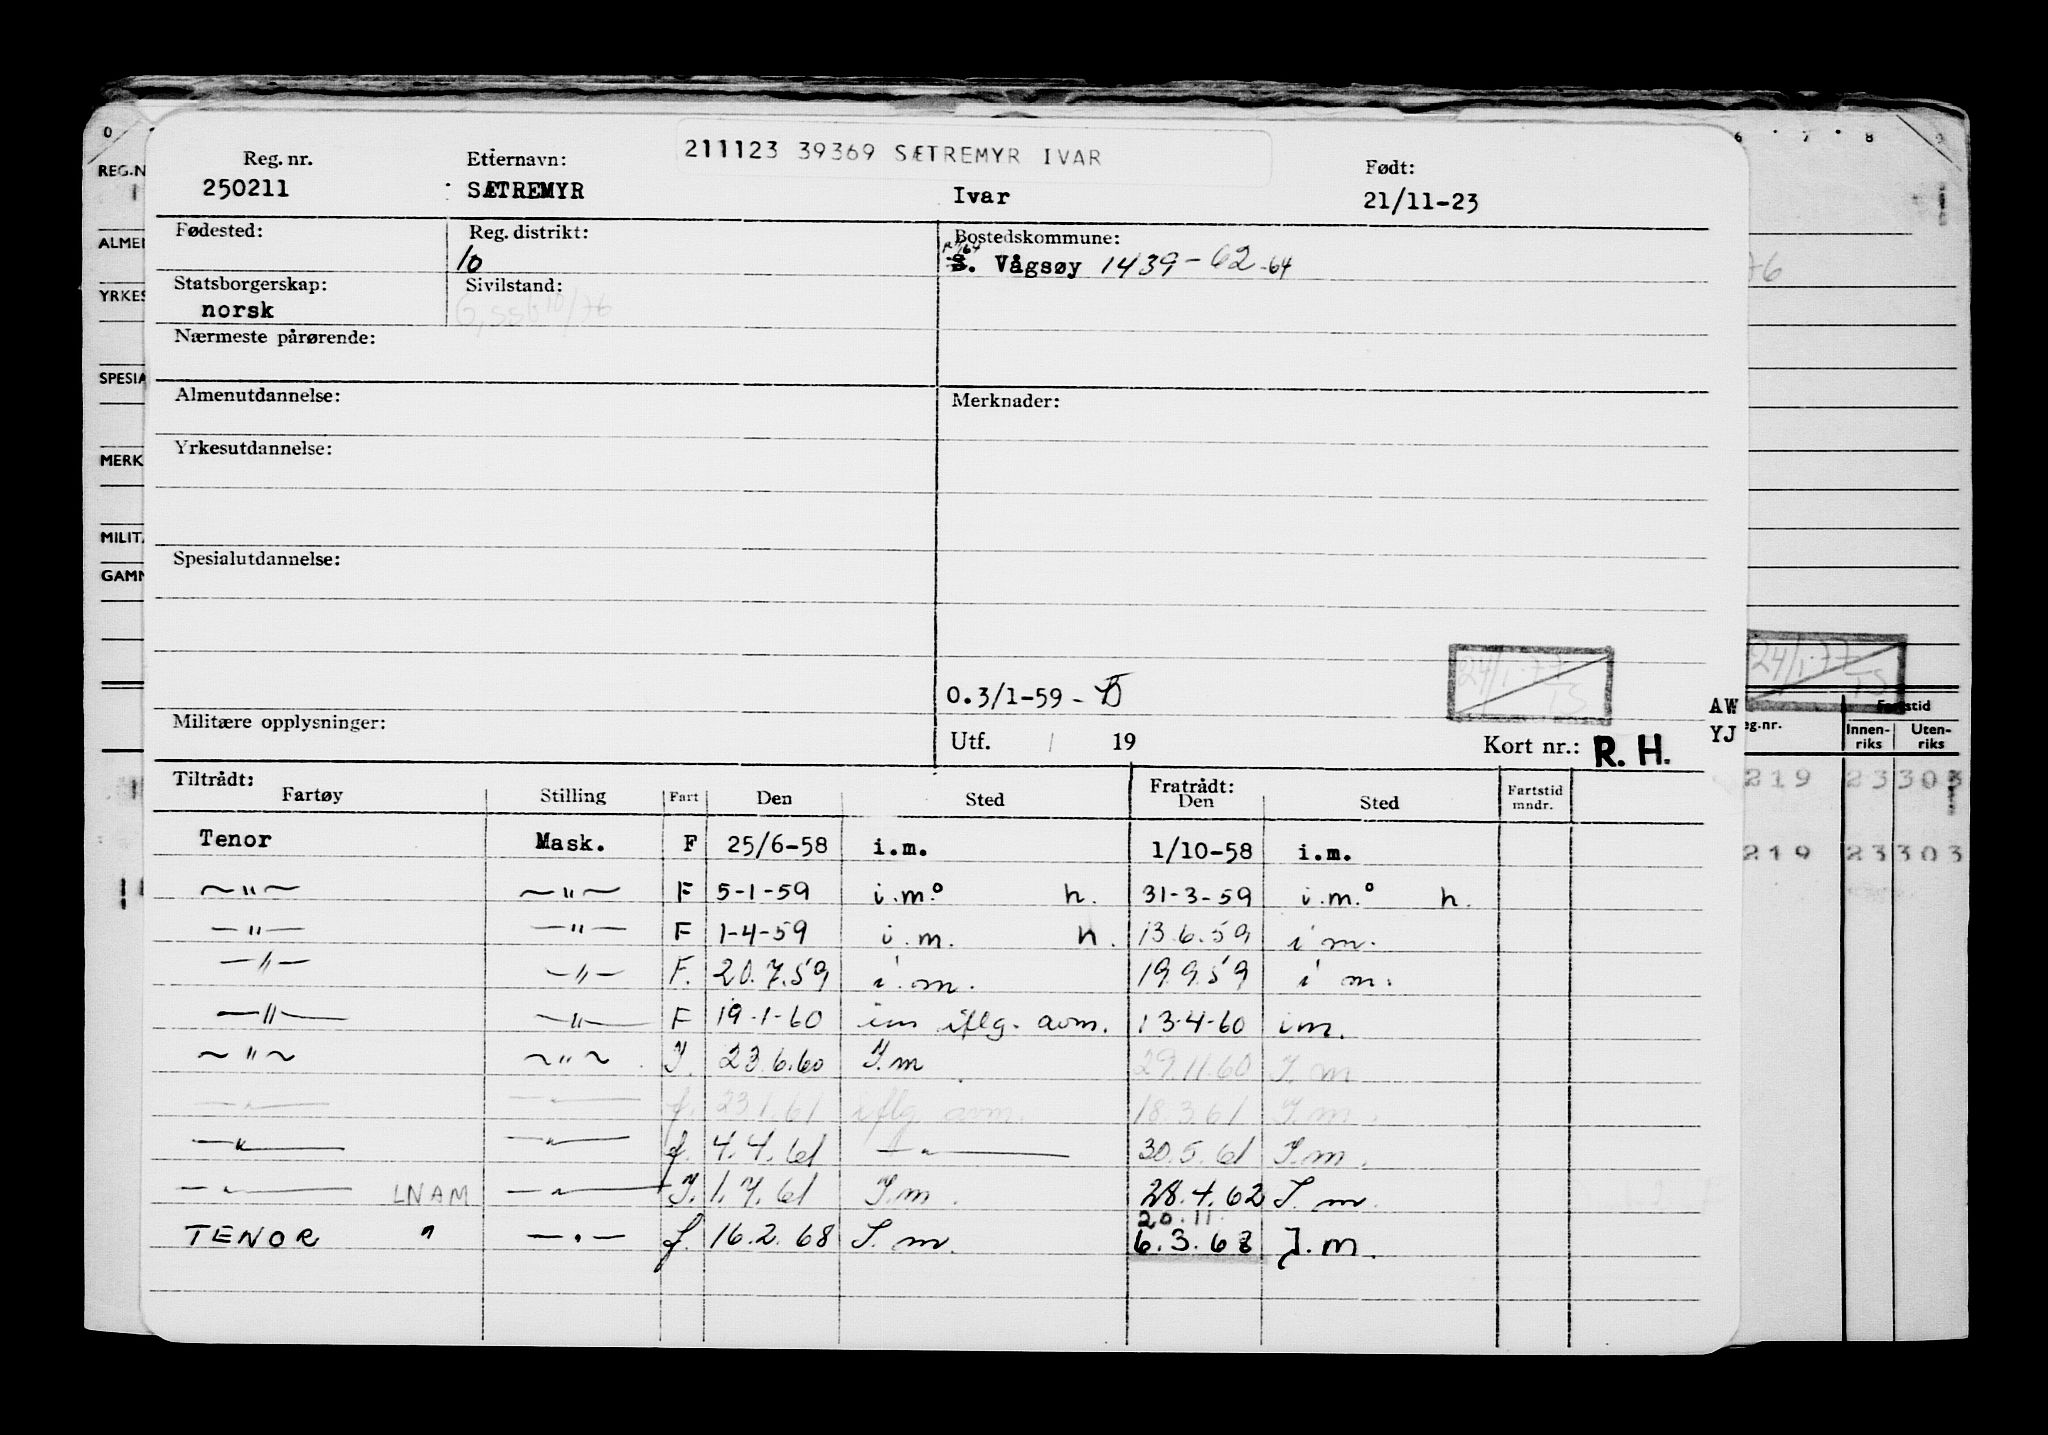 211123 39369 SÆTREMYR IVAR
Reg. nr. Etternavn: Født:
250211 SÆTREMYR Ivar 21/11-23
Fødested: Reg. distrikt: Bostedskommune:
10 S. Vågsøy 1439-62-64
Statsborgerskap: Sivilstand:
norsk
Nærmeste pårørende:
Almenutdannelse: Merknader:
Yrkesutdannelse:
Spesialutdannelse:
24/1-77
TS
0.3/1-59 -
Militære opplysninger: Utf. 19 Kort nr.: R. H.
Tiltrådt: Fratrådt:
Fartøy Stilling Fart Den Sted Den Sted Fartstid mndr.
Tenor Mask. F 25/6-58 i.m. 1/10-58 i.m.
~"~ ~"~ F 5-1-59 i.m.° h. 31-3-59 i.m.° h.
—"— —"— F 1-4-59 i.m. h. 13.6.59 i m.
—"— —"— F. 20.7.59 i.m. 19.9.59 i m.
—"— —"— F 19-1-60 im iflg. avm. 13-4-60 im.
~"~ ~"~ I. 23.6.60 I.m 29.11.60 I.m
—"— —"— f. 23.1.61 iflg. avm. 18.3.61 I.m.
—"— —"— f. 4.4.61 —"— 30.5.61 I.m.
—"— LNAM —"— I. 1.7.61 I.m. 28.4.62 I.m.
20.11.
TENOR " —"— f. 16.2.68 I.m. 6.3.68 I.m.
REG.N
ALMEN
YRKES
SPESIA
MERK
MILIT
GAMN
0
6 7 8 9
76
24/1-77
TS
AW
YJ
eg.nr. Fartstid
Innen-riks Uten-riks
219 23 303
219 23 303